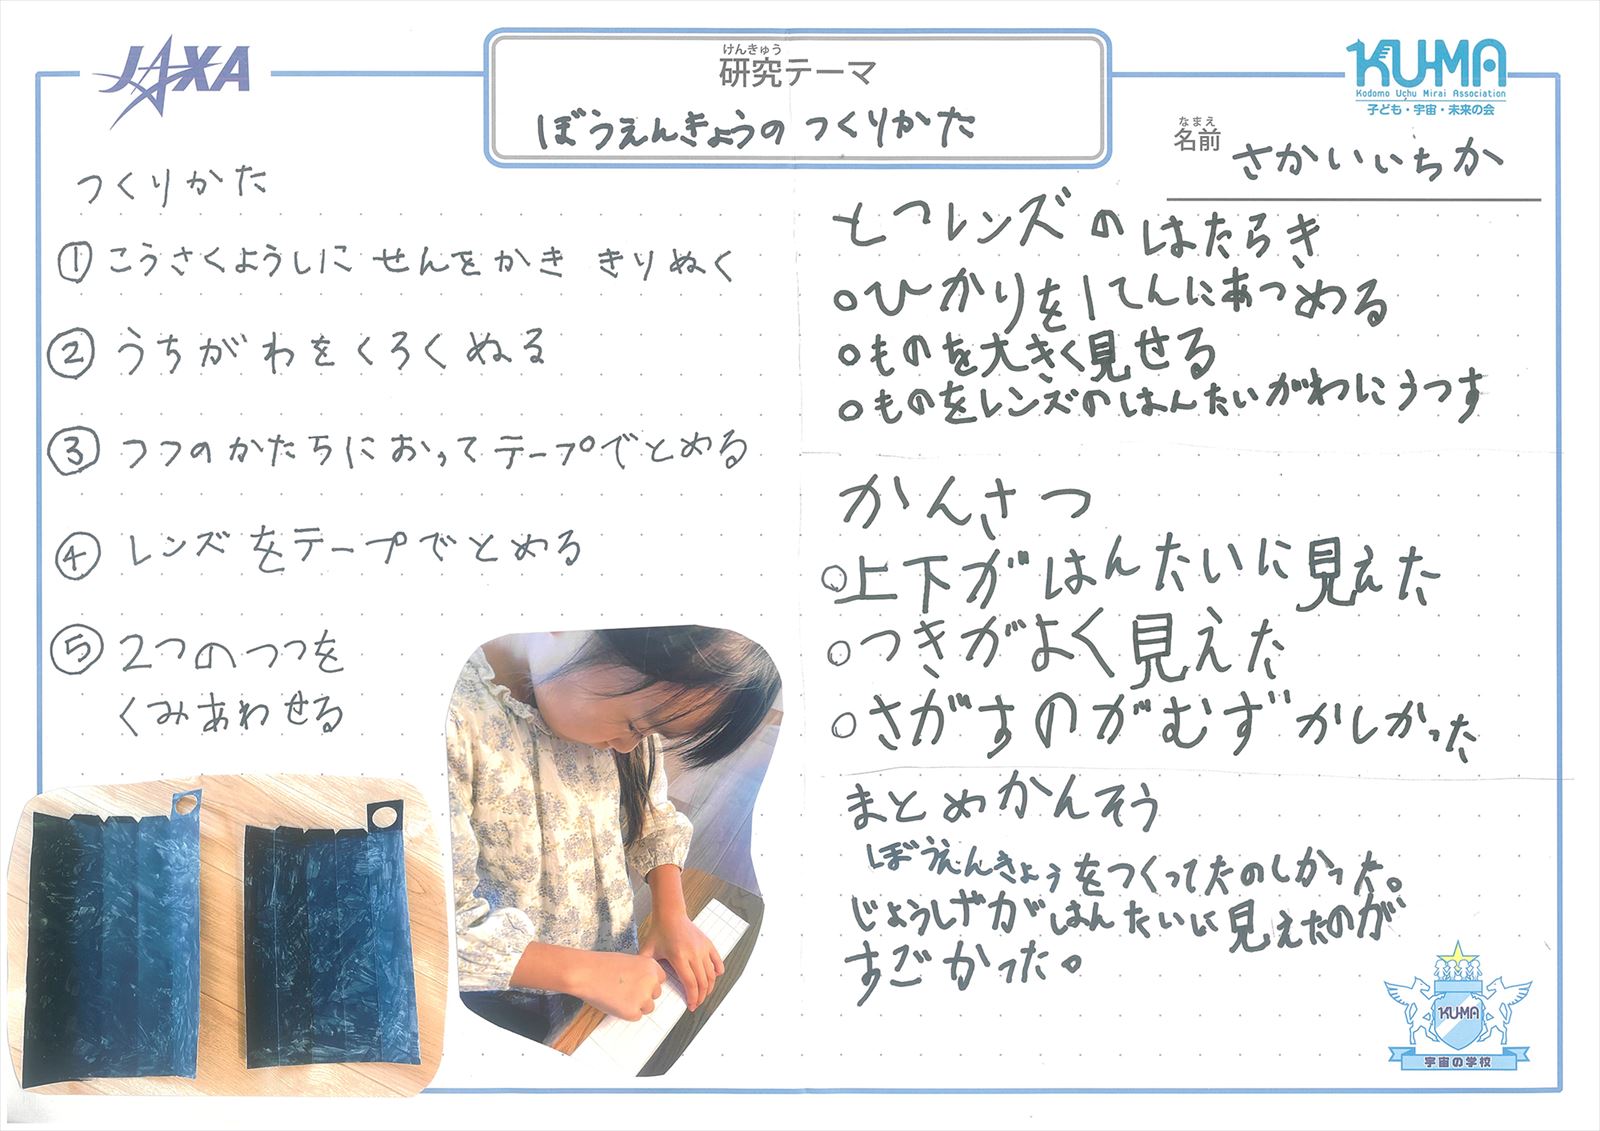 JAXA
けんきゅう
研究テーマ
ぼうえんきょうの つくりかた
KUMA
Kodomo Uchu Mirai Association
子ども・宇宙・未来の会
なまえ
名前
さかいいちか
つくりかた
① こうさくようしに せんをかき きりぬく
② うちがわをくろくぬる
③ つつのかたちにおってテープでとめる
④ レンズをテープでとめる
⑤ 2つのつつを
くみあわせる
とつレンズのはたらき
○ひかりを1てんにあつめる
○ものを大きく見せる
○ものをレンズのはんたいがわにうつす
かんさつ
○上下がはんたいに見えた
○つきがよく見えた
○さがすのがむずかしかった
まとめかんそう
ぼうえんきょうをつくってたのしかった。
じょうげがはんたいに見えたのが
すごかった。
KUMA
宇宙の学校